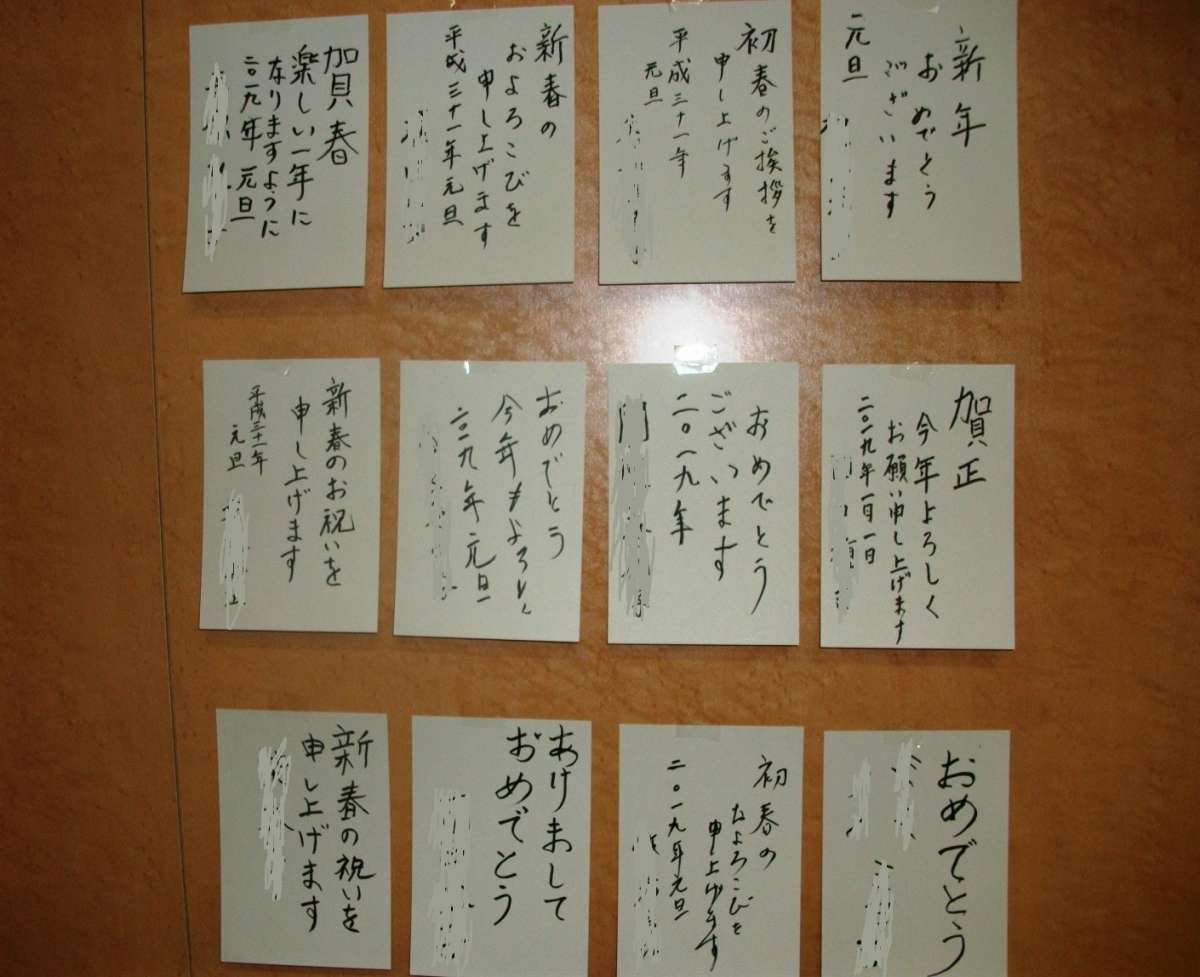 新年
おめでとう
ございます
元旦
初春のご挨拶を
申し上げます
平成三十一年
元旦
新春の
およろこびを
申し上げます
平成三十一年元旦
賀春
楽しい一年に
なりますように
二〇一九年 元旦
賀正
今年よろしく
お願い申し上げます
二〇一九年一日一日
おめでとう
ございます
二〇一九年
おめでとう
今年もよろしく
二〇一九年元旦
新春のお祝いを
申し上げます
平成三十一年
元旦
おめでとう
初春の
およろこびを
申し上げます
二〇一九年元旦
あけまして
おめでとう
新春の祝いを
申し上げます